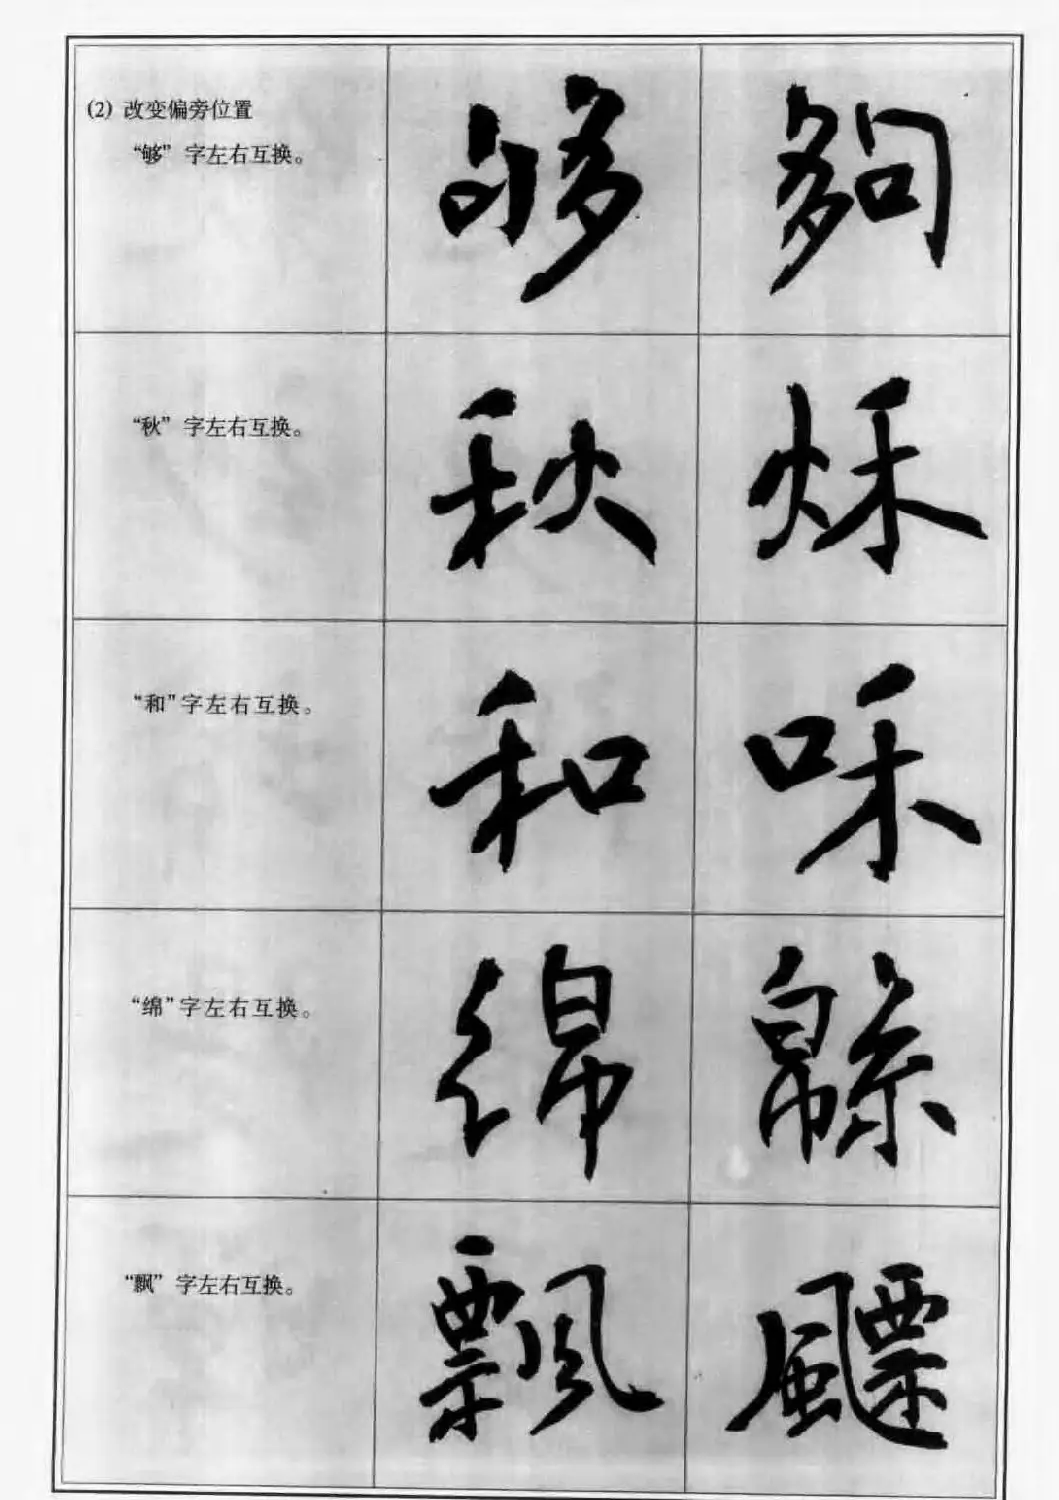 (2) 改变偏旁位置
“够” 字左右互换。
够 夠
“秋” 字左右互换。
秋 秌
“和”字左右互换。
和 咊
“绵”字左右互换。
綿 緜
“飘” 字左右互换。
飄 飃